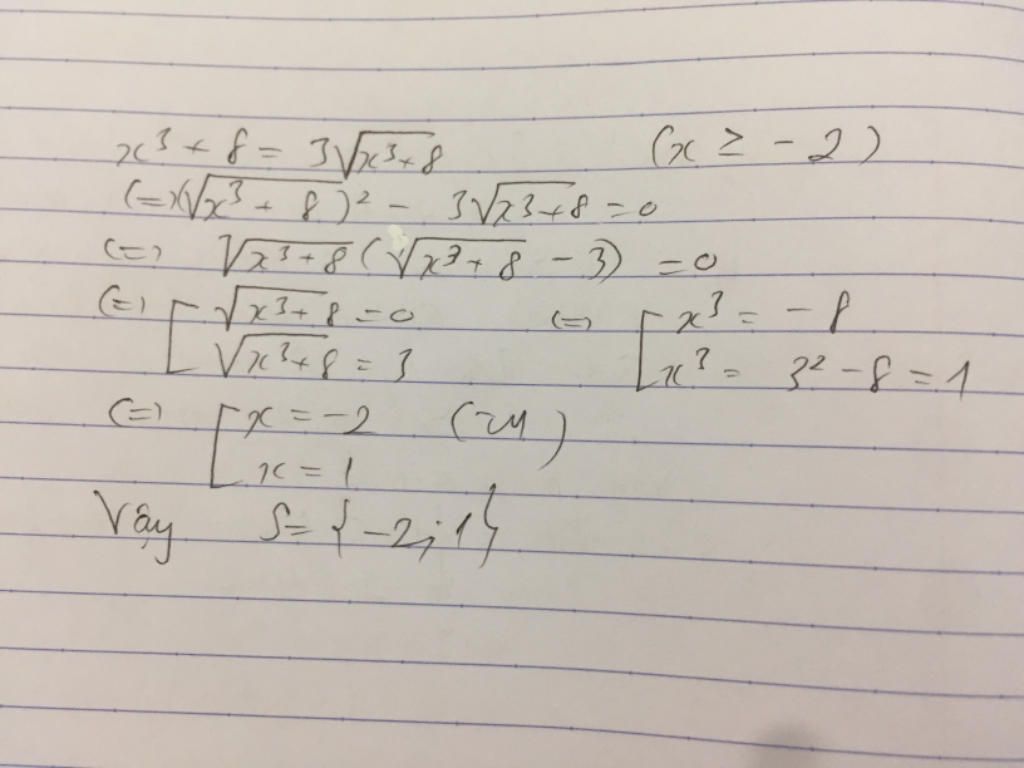 x³ + 8 = 3√(x³+8) (x ≥ -2)
(=) (√(x³ + 8))² - 3√(x³+8) = 0
(=) √(x³+8) (√(x³+8) - 3) = 0
(=) [ √(x³+8) = 0 (=) [ x³ = -8
√(x³+8) = 3 x³ = 3² - 8 = 1
(=) [ x = -2 (TM)
x = 1
Vậy S = {-2; 1}